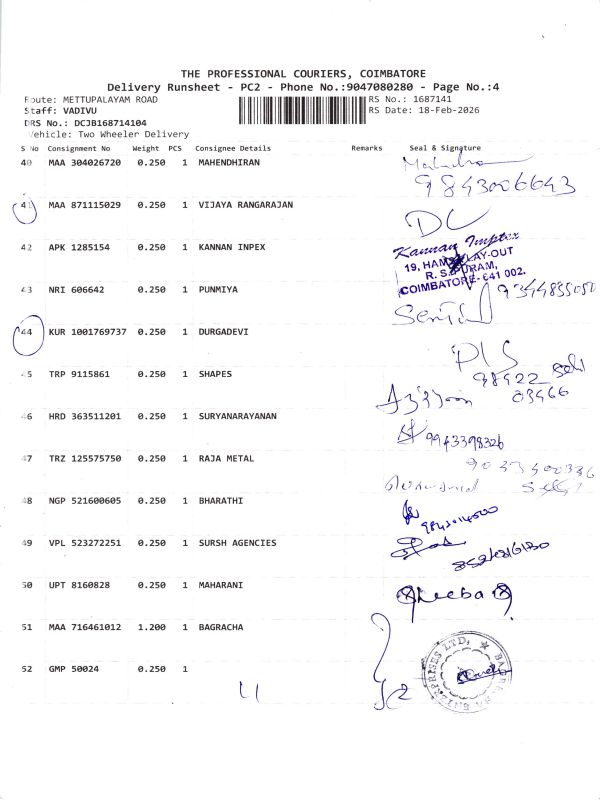 THE PROFESSIONAL COURIERS, COIMBATORE
Delivery Runsheet - PC2 - Phone No.:9047080280 - Page No.:4
Route: METTUPALAYAM ROAD RS No.: 1687141
Staff: VADIVU RS Date: 18-Feb-2026
DRS No.: DCJB168714104
Vehicle: Two Wheeler Delivery
S No Consignment No Weight PCS Consignee Details Remarks Seal & Signature
40 MAA 304026720 0.250 1 MAHENDHIRAN
9843006643
41 MAA 871115029 0.250 1 VIJAYA RANGARAJAN
DL
42 APK 1285154 0.250 1 KANNAN INPEX
Kannan Imptex
19, LAY-OUT
R. S. PURAM,
COIMBATORE-641 002.
43 NRI 606642 0.250 1 PUNMIYA
44 KUR 1001769737 0.250 1 DURGADEVI
D/S
45 TRP 9115861 0.250 1 SHAPES
98422
03466
46 HRD 363511201 0.250 1 SURYANARAYANAN
9943398326
47 TRZ 125575750 0.250 1 RAJA METAL
48 NGP 521600605 0.250 1 BHARATHI
49 VPL 523272251 0.250 1 SURSH AGENCIES
50 UPT 8160828 0.250 1 MAHARANI
Sheeba
51 MAA 716461012 1.200 1 BAGRECHA
52 GMP 50024 0.250 1